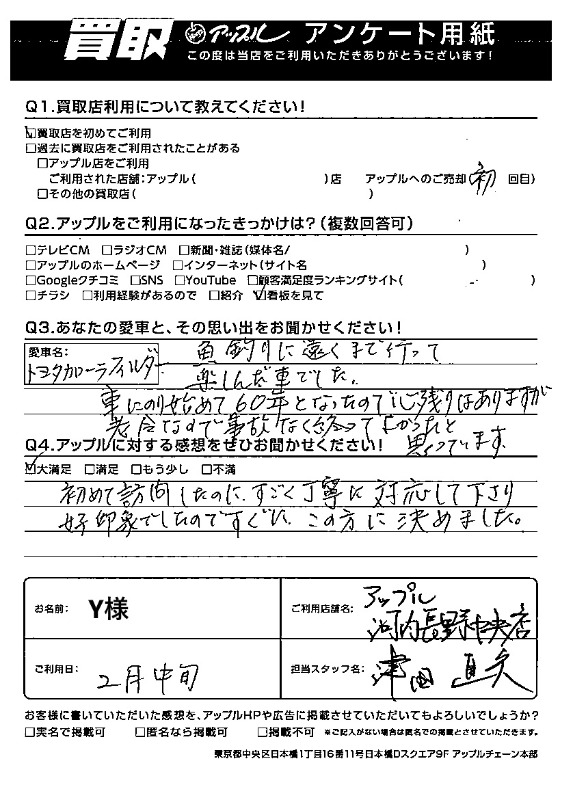 買取 アップル アンケート用紙
この度は当店をご利用いただきありがとうございます!
Q1.買取店利用について教えてください!
☑買取店を初めてご利用
□過去に買取店をご利用されたことがある
□アップル店をご利用
ご利用された店舗:アップル( )店 アップルへのご売却(初 回目)
□その他の買取店( )
Q2.アップルをご利用になったきっかけは?(複数回答可)
□テレビCM □ラジオCM □新聞・雑誌(媒体名/ )
□アップルのホームページ □インターネット(サイト名 )
□Googleクチコミ □SNS □YouTube □顧客満足度ランキングサイト( )
□チラシ □利用経験があるので □紹介 ☑看板を見て
Q3.あなたの愛車と、その思い出をお聞かせください!
愛車名:
トヨタカローラフィルダー
魚釣りに遠くまで行って
楽しんだ車でした。
車にのり始めて60年となったので心残りはありますが
老令なので事故なく終ってよかったと
思っています。
Q4.アップルに対する感想をぜひお聞かせください!
☑大満足 □満足 □もう少し □不満
初めて訪問したのに、すごく丁寧に対応して下さり
好印象でしたのですぐに この方に決めました。
お名前: Y様
ご利用店舗名: アップル
河内長野中央店
ご利用日: 2月中旬
担当スタッフ名: 津田 直矢
お客様に書いていただいた感想を、アップルHPや広告に掲載させていただいてもよろしいでしょうか?
□実名で掲載可 □匿名なら掲載可 □掲載不可 ※ご記入がない場合は匿名での掲載とさせていただきます。
東京都中央区日本橋1丁目16番11号日本橋Dスクエア9F アップルチェーン本部